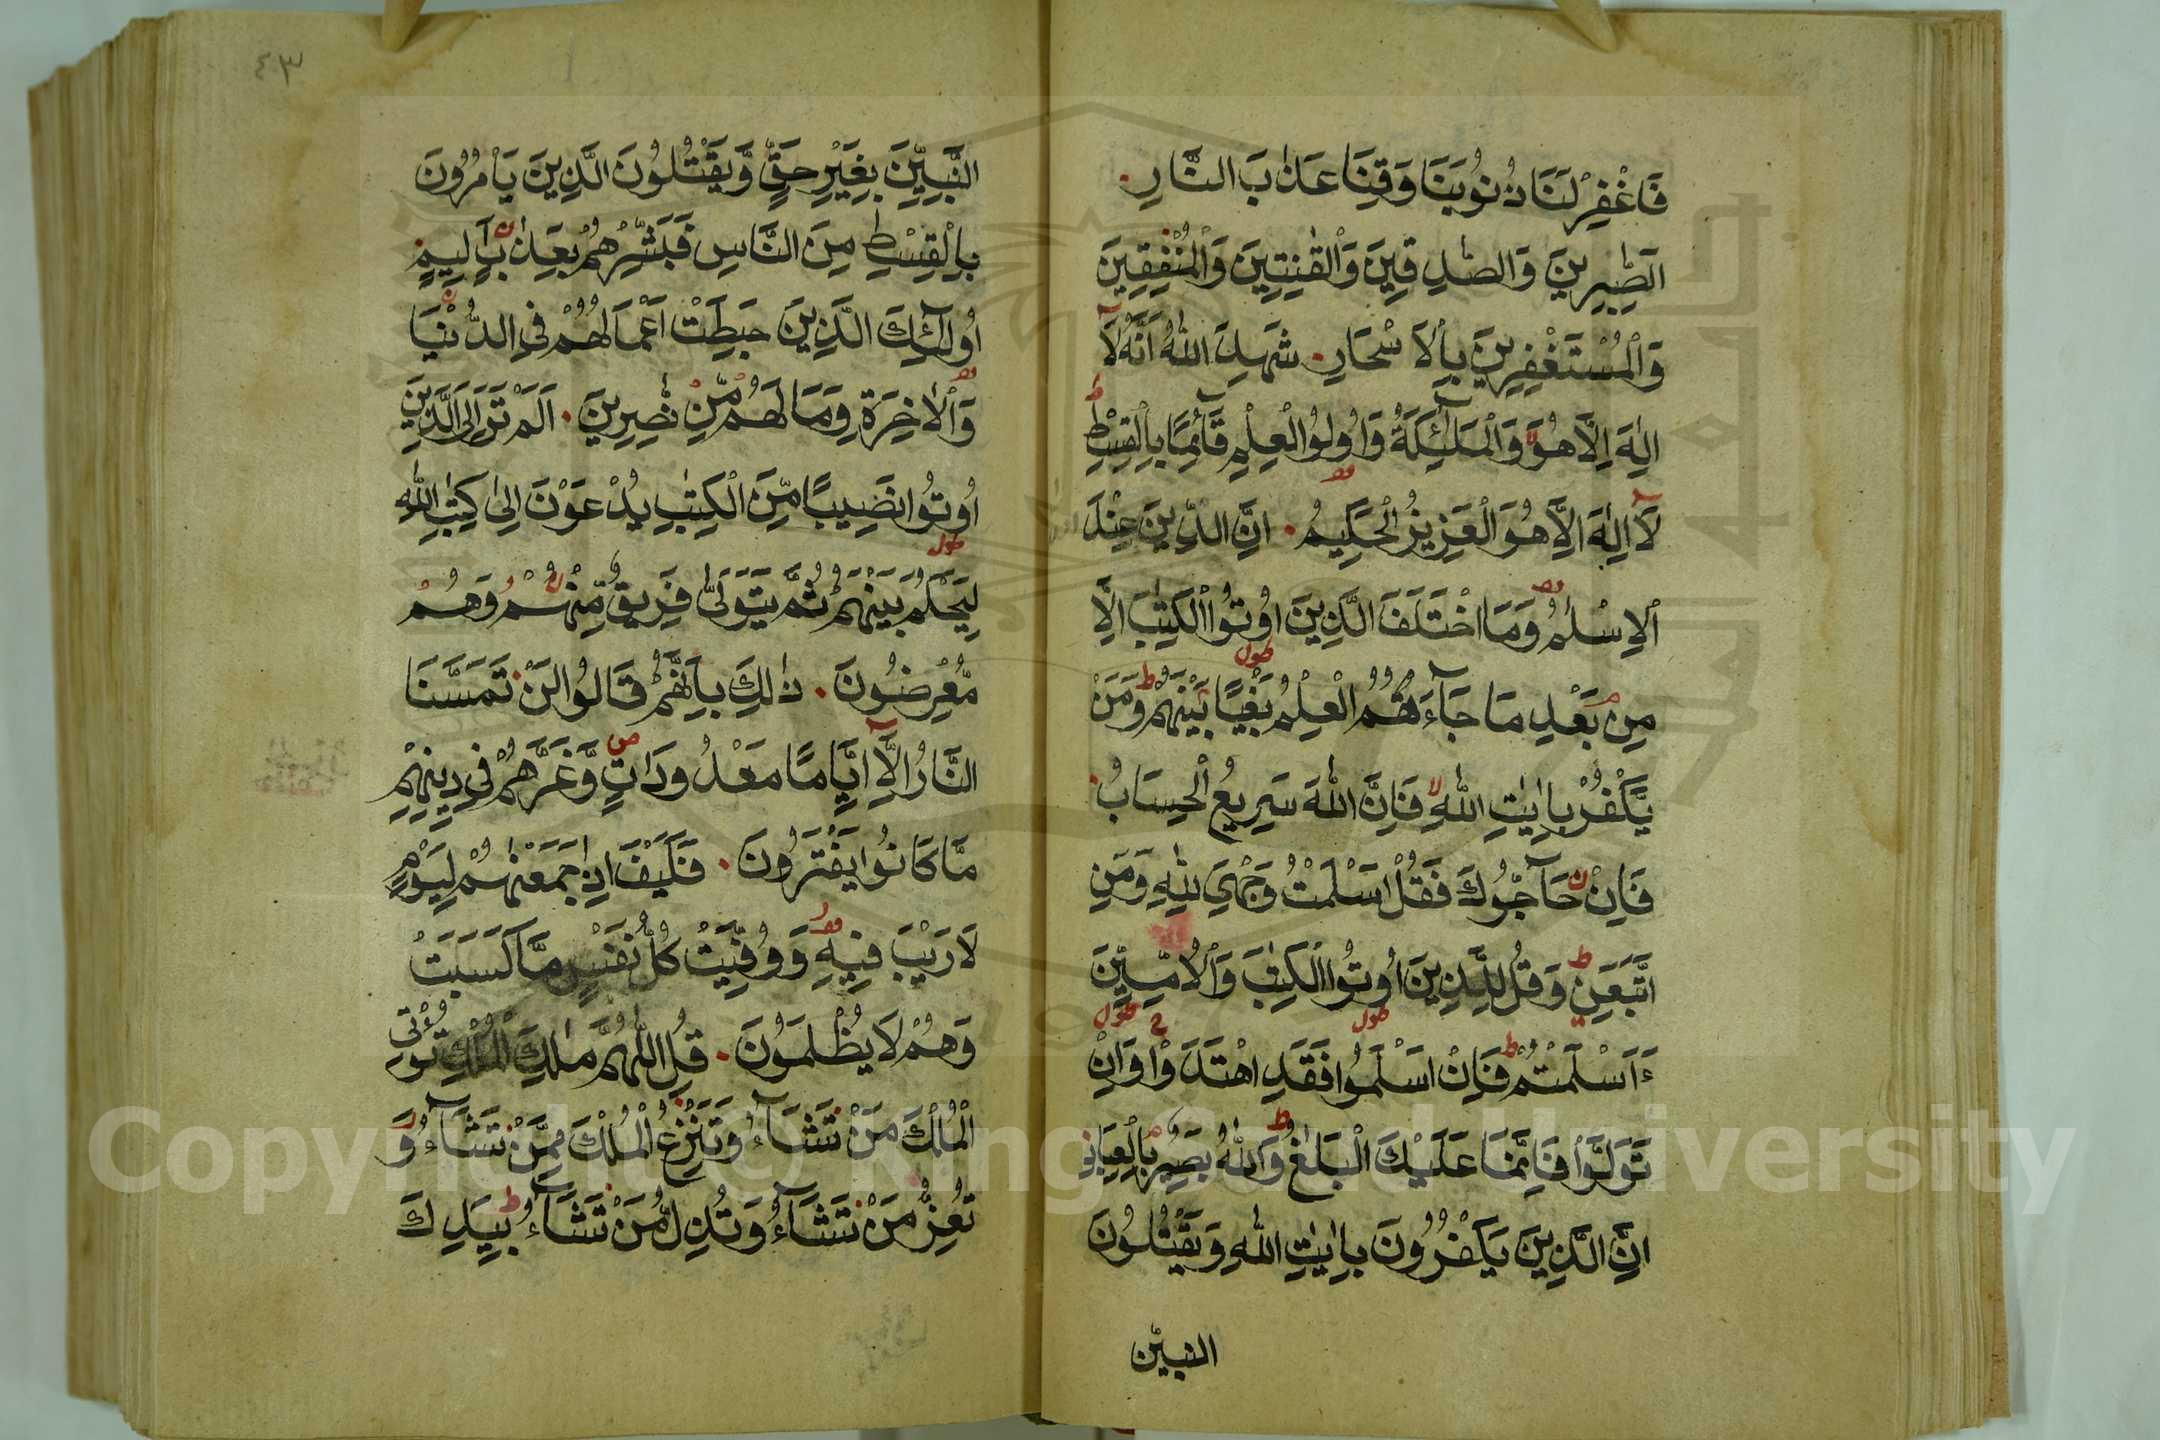 فَاغْفِرْ لَنَا ذُنُوبَنَا وَقِنَا عَذَابَ النَّارِ
الصّٰبِرِينَ وَالصّٰدِقِينَ وَالْقٰنِتِينَ وَالْمُنْفِقِينَ
وَالْمُسْتَغْفِرِينَ بِالْاَسْحَارِ شَهِدَ اللّٰهُ اَنَّهُ لَآ
اِلٰهَ اِلَّا هُوَ وَالْمَلٰٓئِكَةُ وَاُولُوا الْعِلْمِ قَآئِمًا بِالْقِسْطِ
لَآ اِلٰهَ اِلَّا هُوَ الْعَزِيزُ الْحَكِيمُ اِنَّ الدِّينَ عِنْدَ
اللّٰهِ
الْاِسْلٰمُ وَمَا اخْتَلَفَ الَّذِينَ اُوتُوا الْكِتٰبَ اِلَّا
مِنْ بَعْدِ مَا جَآءَهُمُ الْعِلْمُ بَغْيًا بَيْنَهُمْ وَمَنْ
يَكْفُرْ بِاٰيٰتِ اللّٰهِ فَاِنَّ اللّٰهَ سَرِيعُ الْحِسَابِ
فَاِنْ حَآجُّوكَ فَقُلْ اَسْلَمْتُ وَجْهِيَ لِلّٰهِ وَمَنِ
اتَّبَعَنِ وَقُلْ لِلَّذِينَ اُوتُوا الْكِتٰبَ وَالْاُمِّيِّنَ
ءَاَسْلَمْتُمْ فَاِنْ اَسْلَمُوا فَقَدِ اهْتَدَوْا وَاِنْ
تَوَلَّوْا فَاِنَّمَا عَلَيْكَ الْبَلٰغُ وَاللّٰهُ بَصِيرٌ بِالْعِبَادِ
اِنَّ الَّذِينَ يَكْفُرُونَ بِاٰيٰتِ اللّٰهِ وَيَقْتُلُونَ
النبيّن
٤٣
النَّبِيِّنَ بِغَيْرِ حَقٍّ وَّيَقْتُلُونَ الَّذِينَ يَاْمُرُونَ
بِالْقِسْطِ مِنَ النَّاسِ فَبَشِّرْهُمْ بِعَذَابٍ اَلِيمٍ
اُولٰٓئِكَ الَّذِينَ حَبِطَتْ اَعْمَالُهُمْ فِي الدُّنْيَا
وَالْاٰخِرَةِ وَمَا لَهُمْ مِّنْ نّٰصِرِينَ اَلَمْ تَرَ اِلَى الَّذِينَ
اُوتُوا نَصِيبًا مِّنَ الْكِتٰبِ يُدْعَوْنَ اِلٰى كِتٰبِ اللّٰهِ
لِيَحْكُمَ بَيْنَهُمْ ثُمَّ يَتَوَلّٰى فَرِيقٌ مِّنْهُمْ وَهُمْ
مُّعْرِضُونَ ذٰلِكَ بِاَنَّهُمْ قَالُوا لَنْ تَمَسَّنَا
النَّارُ اِلَّآ اَيَّامًا مَعْدُودَاتٍ وَّغَرَّهُمْ فِي دِينِهِمْ
مَّا كَانُوا يَفْتَرُونَ فَكَيْفَ اِذَا جَمَعْنٰهُمْ لِيَوْمٍ
لَا رَيْبَ فِيهِ وَوُفِّيَتْ كُلُّ نَفْسٍ مَّا كَسَبَتْ
وَهُمْ لَا يُظْلَمُونَ قُلِ اللّٰهُمَّ مٰلِكَ الْمُلْكِ تُؤْتِي
الْمُلْكَ مَنْ تَشَآءُ وَتَنْزِعُ الْمُلْكَ مِمَّنْ تَشَآءُ وَ
تُعِزُّ مَنْ تَشَآءُ وَتُذِلُّ مَنْ تَشَآءُ بِيَدِكَ
Copyright © King Saud University